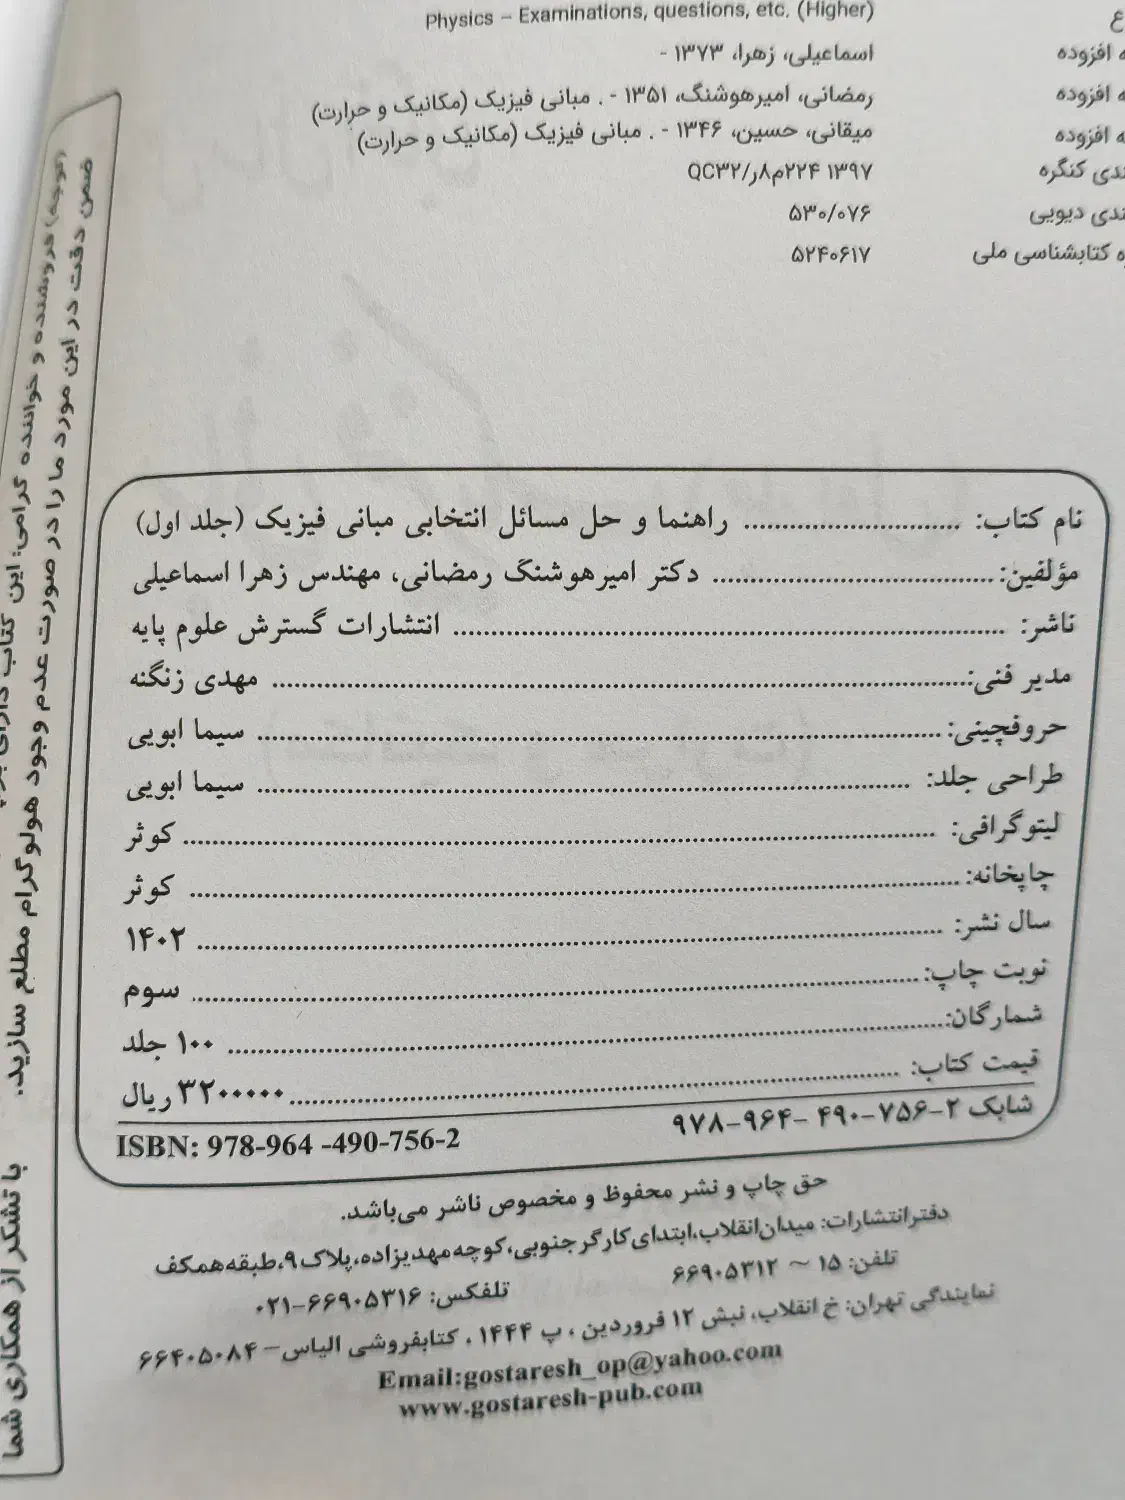 Physics – Examinations, questions, etc. (Higher)
ه افزوده اسماعیلی، زهرا، ۱۳۷۳ -
ه افزوده رمضانی، امیرهوشنگ، ۱۳۵۱ - . مبانی فیزیک (مکانیک و حرارت)
ه افزوده میقانی، حسین، ۱۳۴۶ - . مبانی فیزیک (مکانیک و حرارت)
ندی کنگره ۱۳۹۷ ۲۲۴م۸ر/QC۳۲
ندی دیویی ۵۳۰/۰۷۶
ه کتابشناسی ملی ۵۲۴۰۶۱۷
نام کتاب: ............................ راهنما و حل مسائل انتخابی مبانی فیزیک (جلد اول)
مؤلفین:..................................... دکتر امیرهوشنگ رمضانی، مهندس زهرا اسماعیلی
ناشر: ........................................................................ انتشارات گسترش علوم پایه
مدیر فنی:........................................................................................... مهدی زنگنه
حروفچینی:......................................................................................... سیما ابویی
طراحی جلد: ..................................................................................... سیما ابویی
لیتوگرافی: .................................................................................................. کوثر
چاپخانه:..................................................................................................... کوثر
سال نشر: ................................................................................................. ۱۴۰۲
نوبت چاپ:................................................................................................ سوم
شمارگان:.............................................................................................. ۱۰۰ جلد
قیمت کتاب: ................................................................................۳۲۰۰۰۰۰ ریال
شابک ۲-۷۵۶-۴۹۰ -۹۶۴-۹۷۸
ISBN: 978-964 -490-756-2
حق چاپ و نشر محفوظ و مخصوص ناشر می‌باشد.
دفترانتشارات: میدان‌انقلاب،ابتدای‌کارگرجنوبی،کوچه‌مهدیزاده،پلاک۹،طبقه‌همکف
تلفن: ۱۵ ~ ۶۶۹۰۵۳۱۲ تلفکس: ۶۶۹۰۵۳۱۶-۰۲۱
نمایندگی تهران: خ انقلاب، نبش ۱۲ فروردین ، پ ۱۴۴۴ ، کتابفروشی الیاس– ۶۶۴۰۵۰۸۴
Email:gostaresh_op@yahoo.com
www.gostaresh-pub.com
(توجه) فروشنده و خواننده گرامی: این کتاب دارای
ضمن دقت در این مورد ما را در صورت عدم وجود هولوگرام مطلع سازید.
با تشکر از همکاری شما